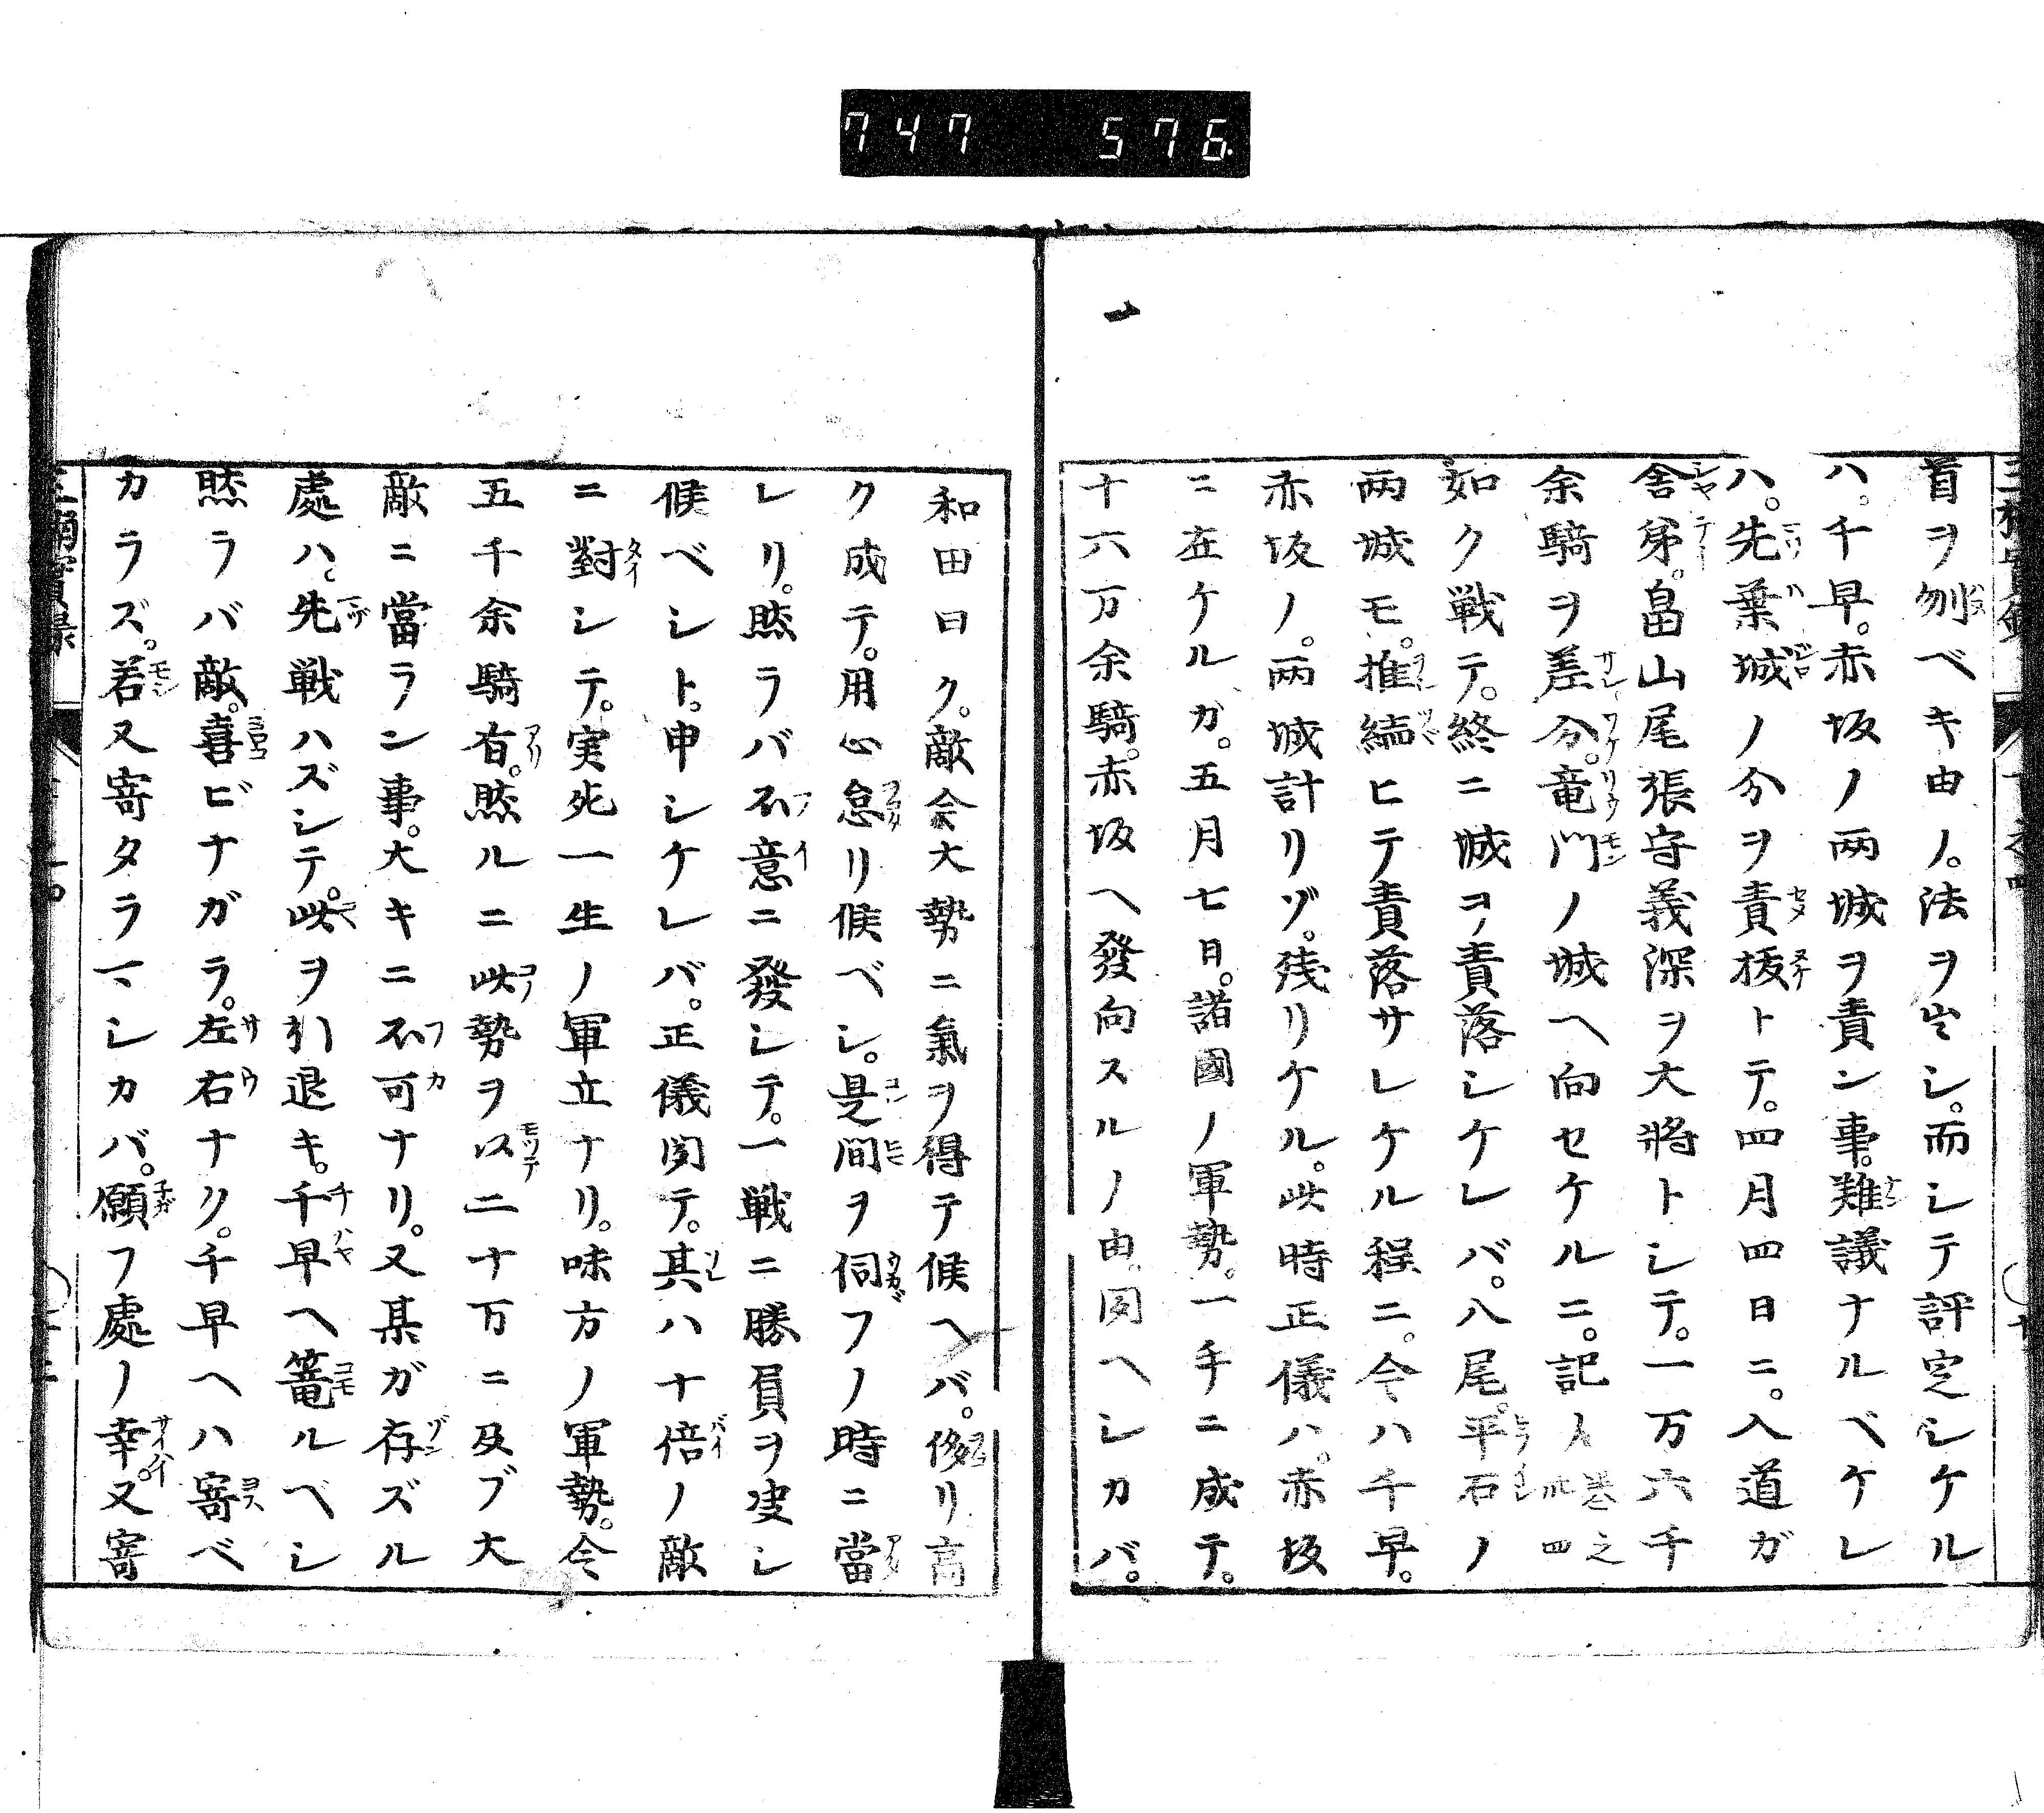 747 576
首ヲ刎ベキ由ノ。法ヲ出シ。而シテ評定シケル
ハ。千早。赤坂ノ両城ヲ責ン事。難議ナルベケレ
ハ。先葉城ノ分ヲ責抜トテ。四月四日ニ。入道ガ
舎弟。畠山尾張守義深ヲ大將トシテ。一万六千
余騎ヲ差分。竜門ノ城ヘ向セケルニ。記 巻之四
如ク戦テ。終ニ城ヲ責落シケレバ。八尾。平石ノ
両城モ。推続ヒテ責落サレケル程ニ。今ハ千早。
赤坂ノ。両城計リゾ。残リケル。此時正儀ハ。赤坂
ニ在ケルガ。五月七日。諸國ノ軍勢。一手ニ成テ。
十六万余騎。赤坂ヘ發向スルノ由。聞ヘシカバ。
和田曰ク。敵今大勢ニ氣ヲ得テ候ヘバ。侈リ高
ク成テ。用心怠リ候ベシ。是間ヲ伺フノ時ニ當
レリ。然ラバ不意ニ發シテ。一戦ニ勝負ヲ決シ
候ベシト。申シケレバ。正儀聞テ。其ハ十倍ノ敵
ニ對シテ。実死一生ノ軍立ナリ。味方ノ軍勢。今
五千余騎有。然ルニ此勢ヲ以二十万ニ及ブ大
敵ニ當ラン事。大キニ不可ナリ。又某ガ存ズル
處ハ。先戦ハズシテ。此ヲ引退キ。千早ヘ篭ルベシ
然ラバ敵。喜ビナガラ。左右ナク。千早ヘハ寄ベ
カラズ。若又寄タラマシカバ。願フ處ノ幸。又寄